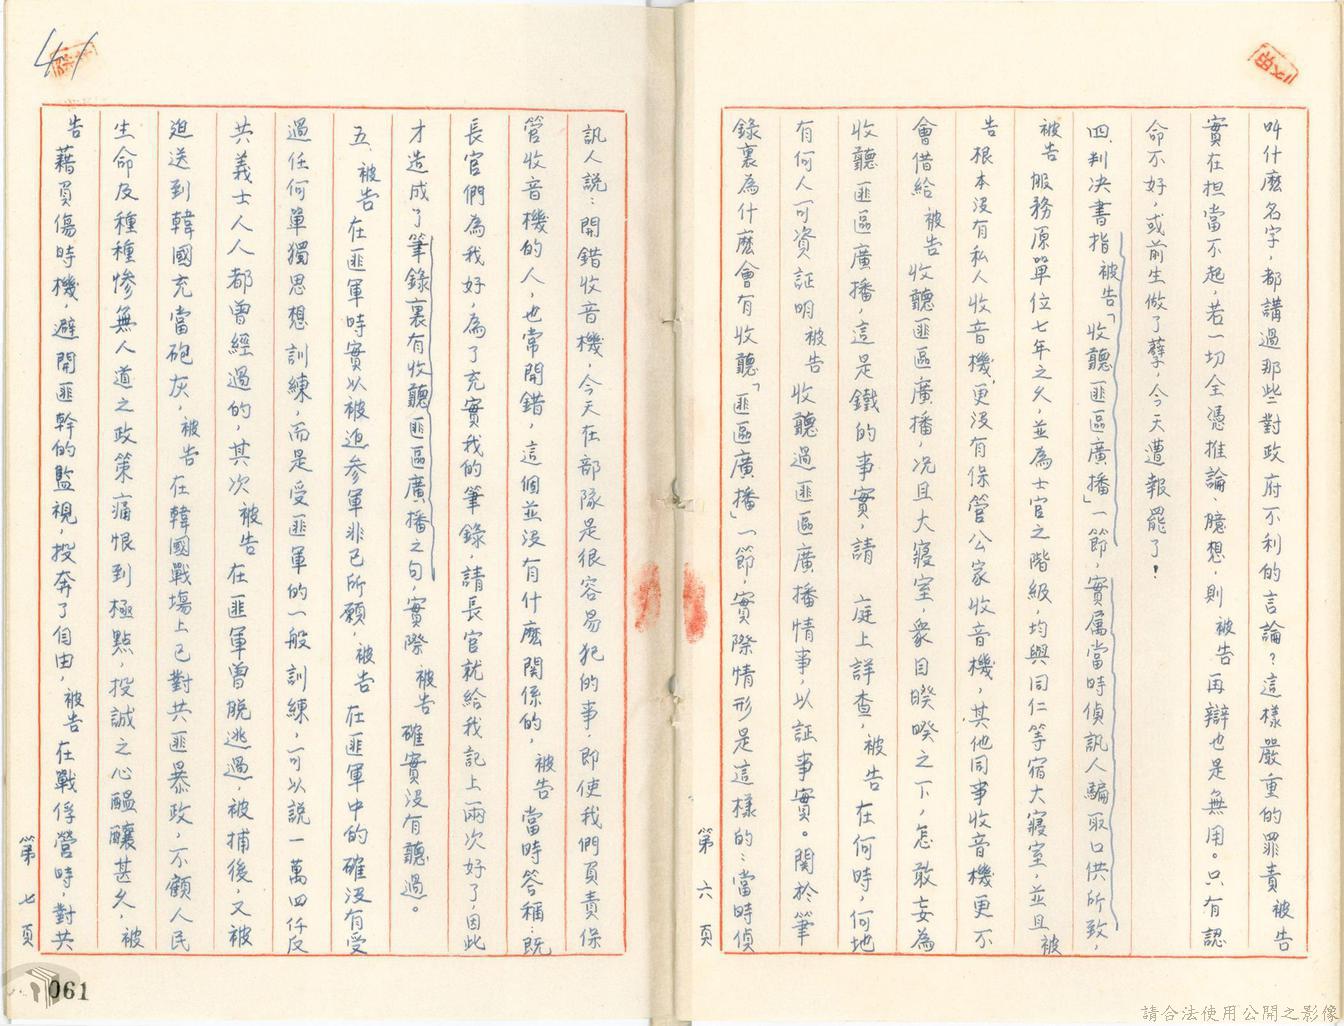 叫什麽名字，都講過那些對政府不利的言論？這樣嚴重的罪責 被告
實在担當不起，若一切全憑推論、臆想，則 被告 再辯也是無用。只有認
命不好，或前生做了孽，今天遭報罷了！
四、判决書指 被告「收聽匪區廣播」一節，實屬當時偵訊人騙取口供所致，
被告 服務原單位七年之久，並為士官之階級，均與同仁等宿大寢室，並且 被
告 根本沒有私人收音機，更沒有保管公家收音機，其他同事收音機更不
會借給 被告 收聽匪區廣播，况且大寢室，衆目睽睽之下，怎敢妄為
收聽匪區廣播，這是鐵的事實，請 庭上詳查，被告 在何時，何地
有何人可資証明 被告 收聽過匪區廣播情事，以証事實。關於筆
錄裏為什麽會有收聽「匪區廣播」一節，實際情形是這樣的：當時偵
第六頁
訊人說：開錯收音機，今天在部隊是很容易犯的事，即使我們負責保
管收音機的人，也常開錯，這個並沒有什麽関係的，被告 當時答稱：既
長官們為我好，為了充實我的筆錄，請長官就給我記上兩次好了，因此
才造成了筆錄裏有收聽匪區廣播之句，實際 被告 確實沒有聽過。
五、被告 在匪軍時實以被迫参軍非已所願，被告 在匪軍中的確沒有受
過任何單獨思想訓練，而是受匪軍的一般訓練，可以說一萬四仟反
共義士人人都曾經過的，其次 被告 在匪軍曾脫逃過，被捕後，又被
迫送到韓國充當砲灰，被告 在韓國戰場上已對共匪暴政，不顧人民
生命及種種慘無人道之政策痛恨到極點，投誠之心醞釀甚久，被
告 藉負傷時機，避開匪幹的監視，投奔了自由，被告 在戰俘營時，對共
第七頁
061
請合法使用公開之影像